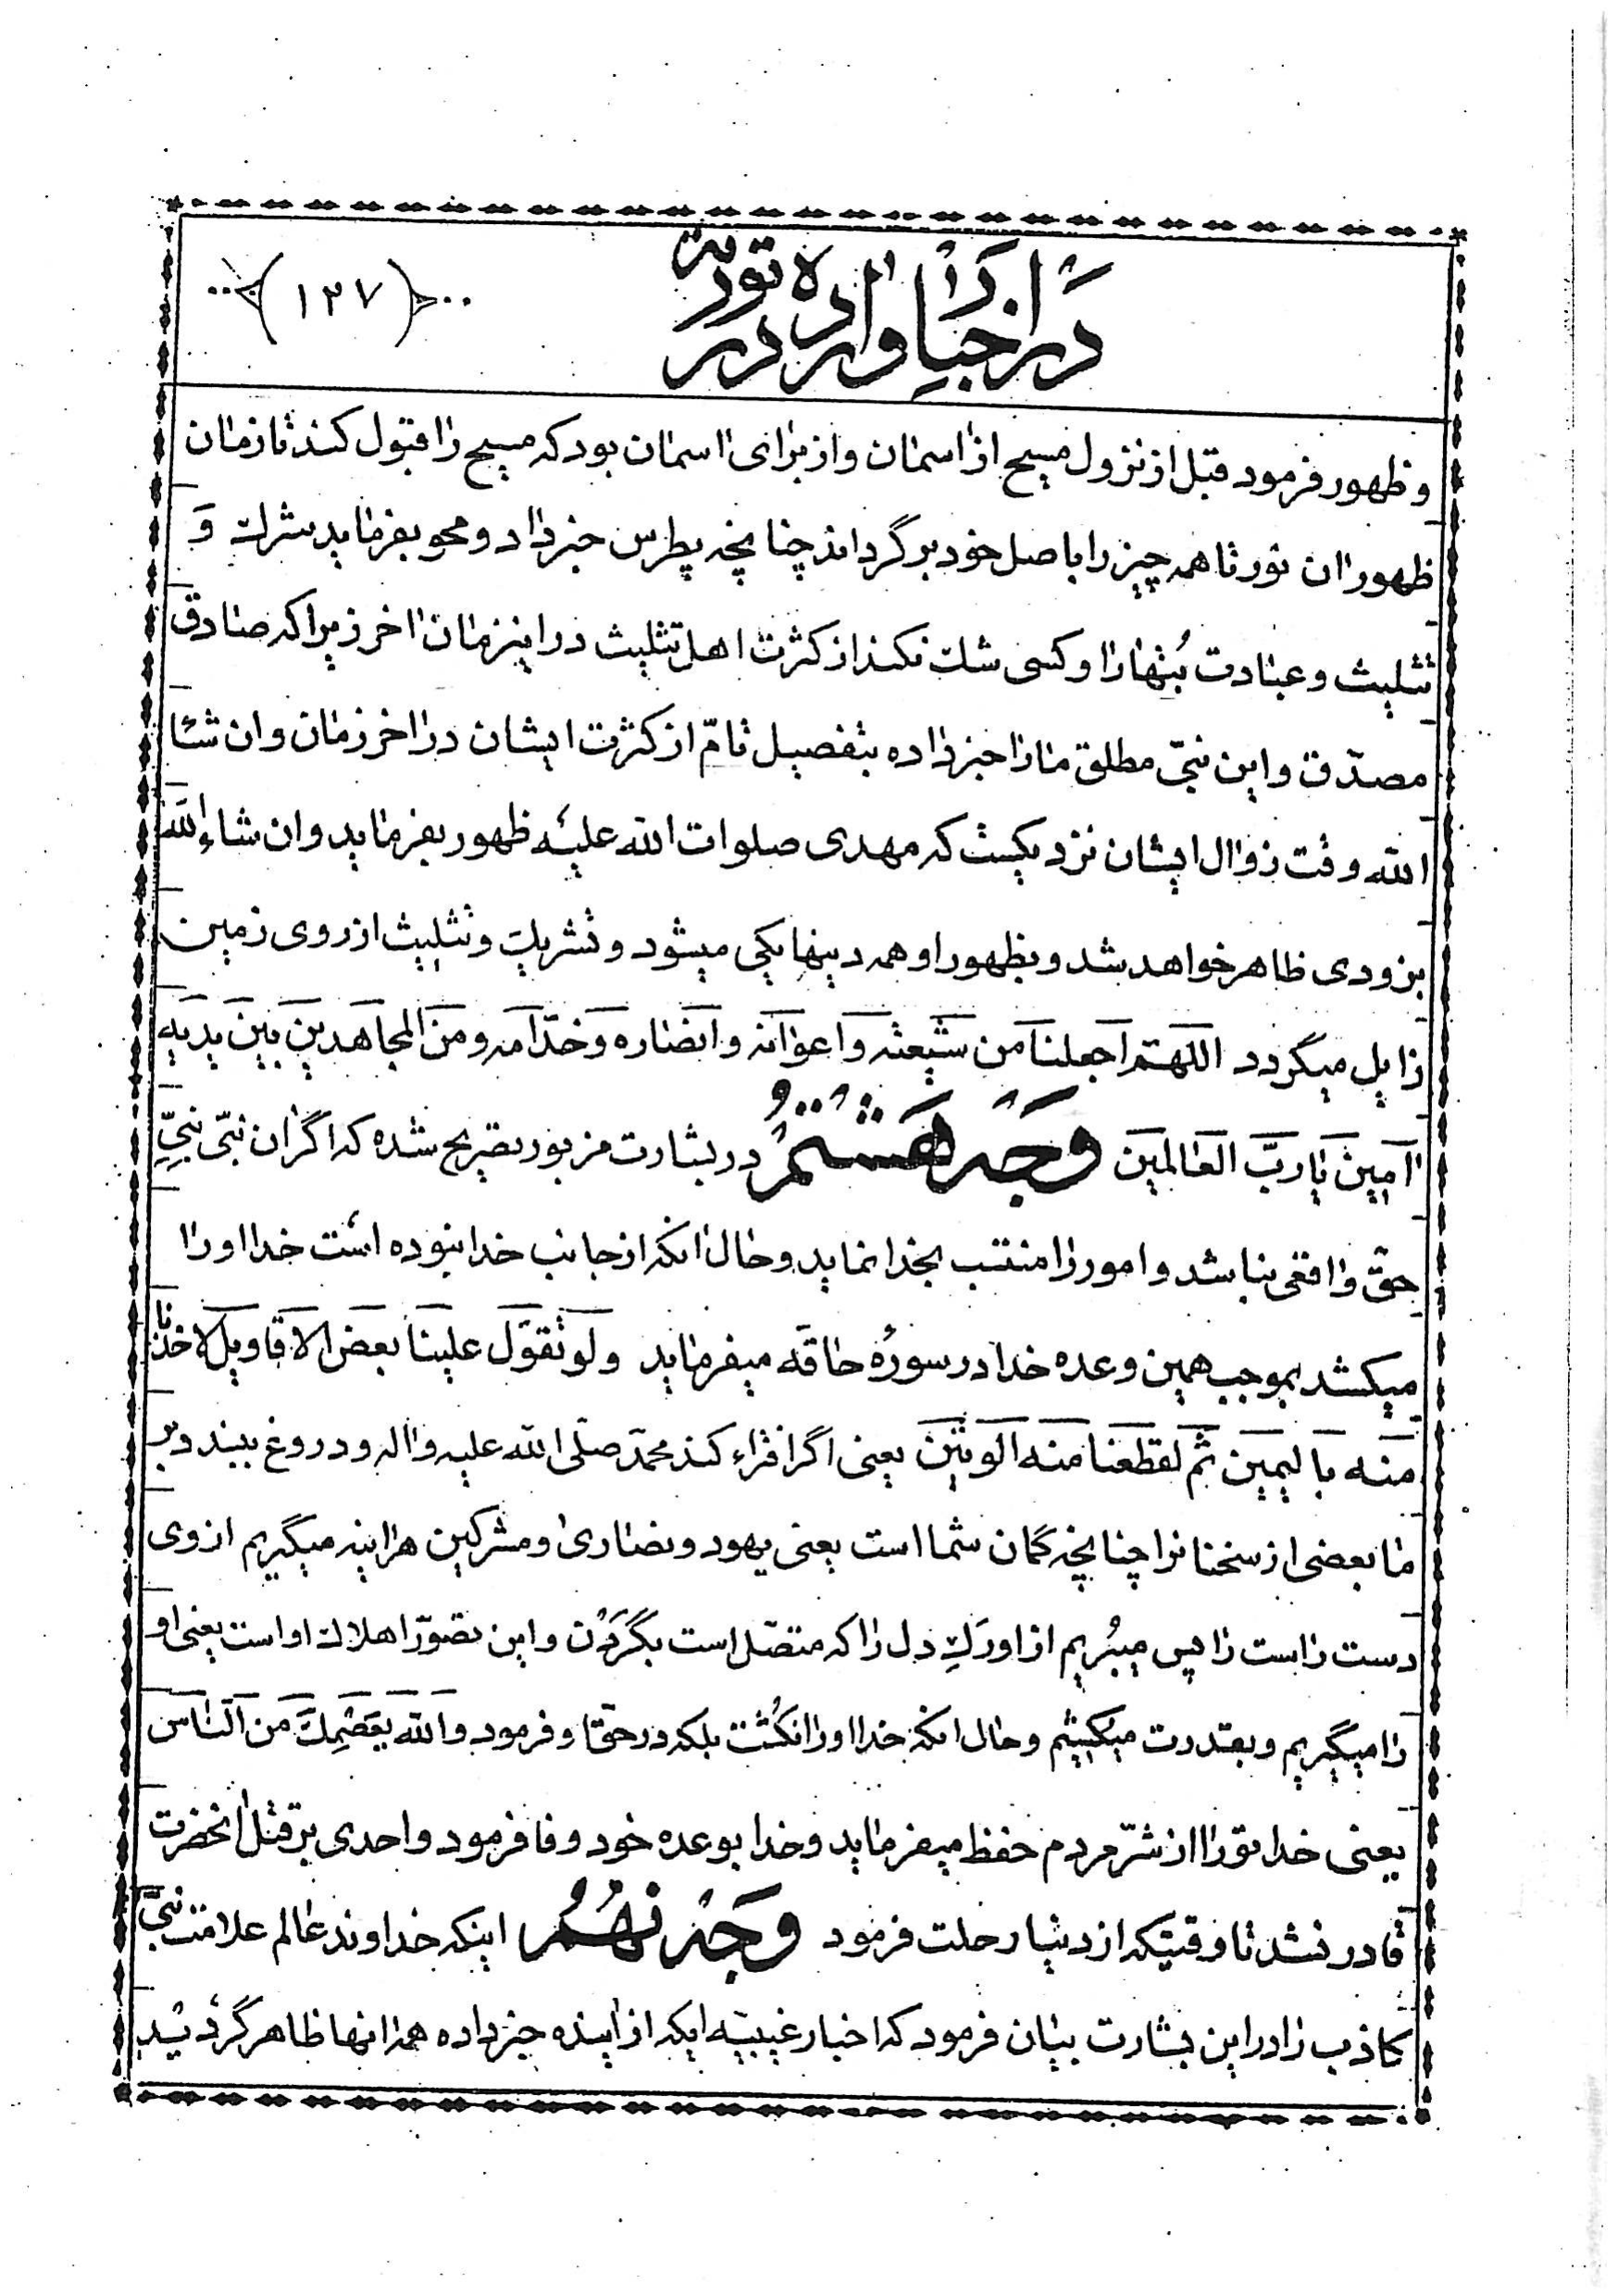 در اخبار وارده در تورية
(۱۲۷)
و ظهور فرمود قبل از نزول مسیح از اسمان و از برای اسمان بود که مسیح را قبول کند تا زمان
ظهور ان نور تا همه چیز را باصل خود برگرداند چنانچه پطرس خبر داد و محو بفرماید شرك و
تثلیث و عبادت بُتها را و کسی شك نکند از کثرت اهل تثلیث در اینزمان اخر زیرا که صادق
مصدّق و این نبیّ مطلق ما را خبر داده بتفصیل تامّ از کثرت ایشان در اخر زمان و ان شاء
الله وقت زوال ایشان نزدیکست که مهدی صلوات الله علیه ظهور بفرماید و ان شاء الله
بزودی ظاهر خواهد شد و بظهور او همه دینها یکی میشود و تشریك و تثلیث از روی زمین
زایل میگردد اللهمّ اجعلنا من شیعته و اعوانه و انصاره و خدّامه و من المجاهدین بین یدیه
امین یا ربّ العالمین وجه هشتم در بشارت مزبور تصریح شده که اگر ان نبی نبیّ
حقّ واقعی نباشد و امور را منتسب بخدا نماید و حال انکه از جانب خدا نبوده است خدا او را
میکشد بموجب همین وعده خدا در سورهٔ حاقّه میفرماید و لو تقوّل علینا بعض الاقاویل لاخذنا
منه بالیمین ثمّ لقطعنا منه الوتین یعنی اگر افتراء کند محمّد صلی الله علیه و اله و دروغ ببندد بر
ما بعضی از سخنانرا چنانچه گمان شما است یعنی یهود و نصاری و مشرکین هراینه میگیریم از وی
دست راست را پس میبُریم از او رَكِ دل را که متصّل است بگردن و این تصوّر اهلاك او است یعنی او
را میگیریم و بقدرت میکشیم و حال انکه خدا او را نکُشت بلکه در حقّ او فرمود و الله یعصمك من النّاس
یعنی خدا تو را از شرّ مردم حفظ میفرماید و خدا بوعده خود وفا فرمود و احدی بر قتل انحضرت
قادر نشد تا وقتیکه از دنیا رحلت فرمود وجه نهم اینکه خداوند عالم علامت نبیّ
کاذب را در این بشارت بیان فرمود که اخبار غیبیّه ایکه از اینده خبر داده همه انها ظاهر گردید